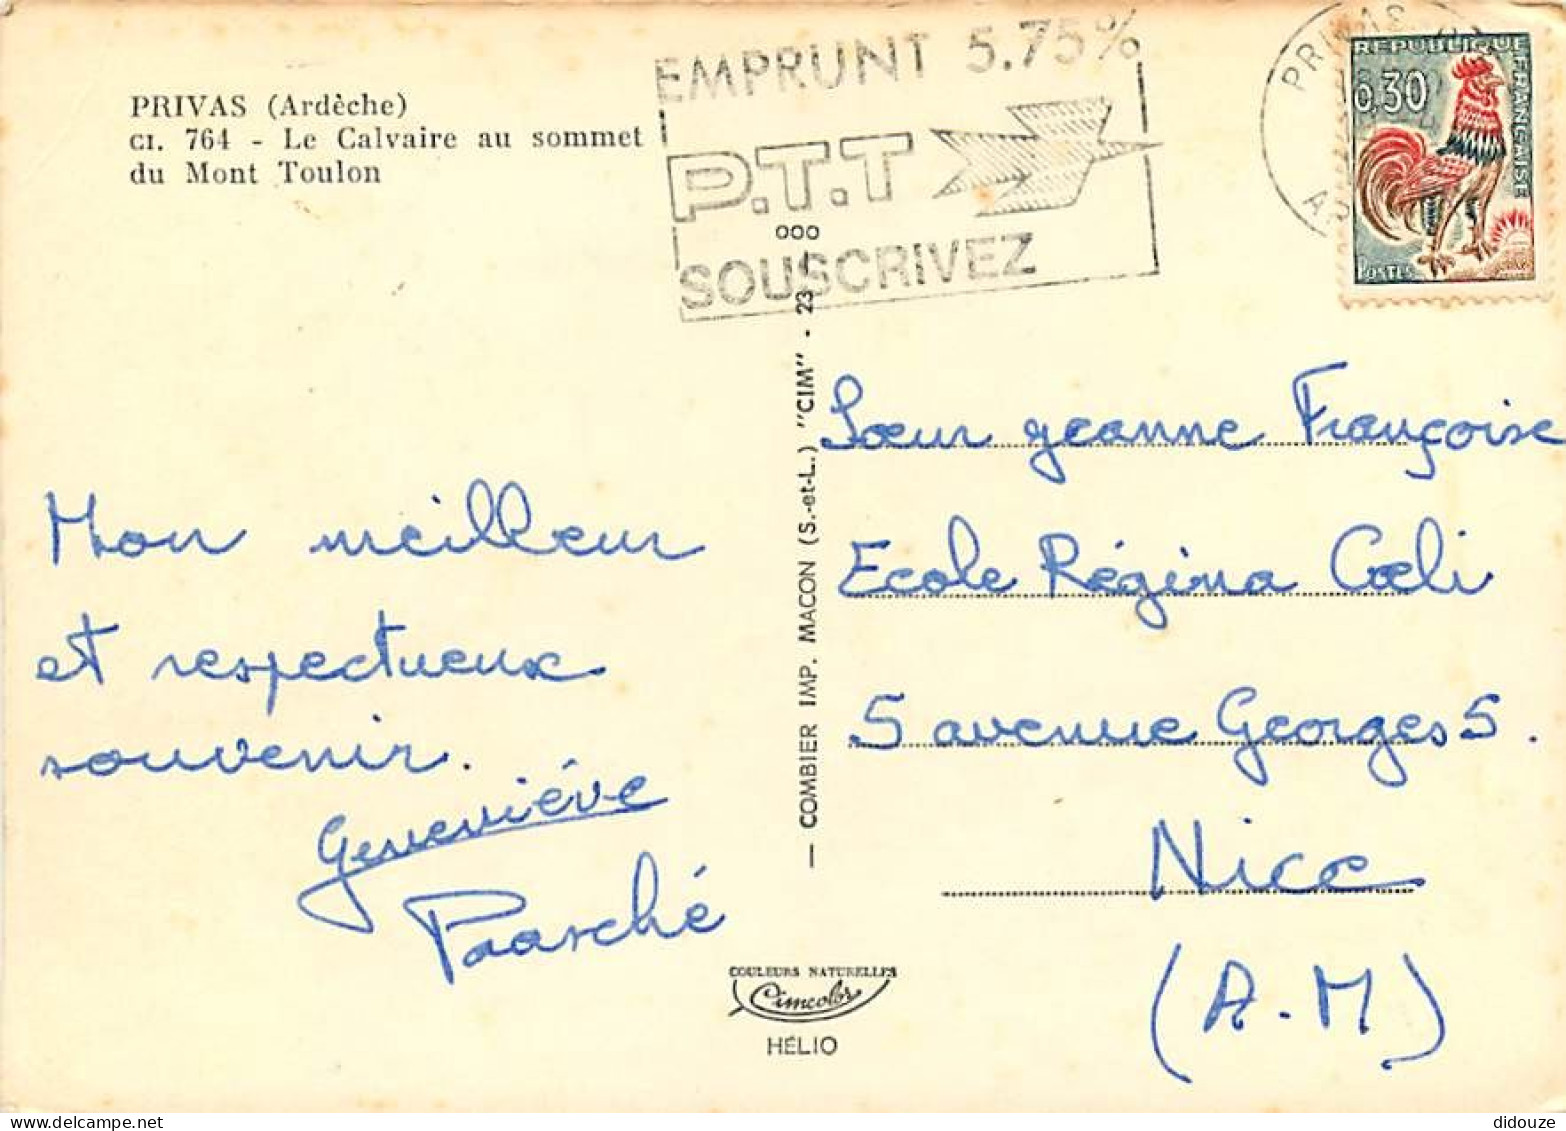 PRIVAS (Ardèche)
CI. 764 - Le Calvaire au sommet
du Mont Toulon
EMPRUNT 5.75%
P.T.T
SOUSCRIVEZ
PRIVAS
REPUBLIQUE FRANÇAISE
0,30
POSTES
Mon meilleur
et respectueux
souvenir.
Geneviève
Paasché
— COMBIER IMP. MACON (S.-et-L.) "CIM" - 23
ooo
Sœur Jeanne Françoise
Ecole Régina Cœli
5 avenue Georges 5.
Nice
(A.M)
COULEURS NATURELLES
Cimcolor
HÉLIO
didouze